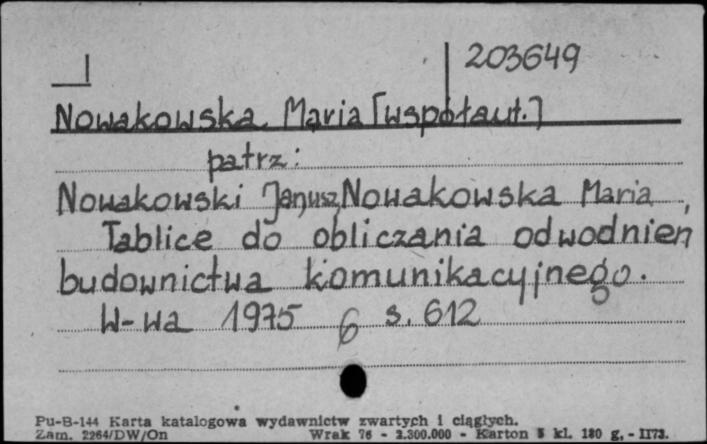 203649
Nowakowska Maria [współaut.]
patrz:
Nowakowski Janusz, Nowakowska Maria,
Tablice do obliczania odwodnień
budownictwa komunikacyjnego.
W-wa 1975 6 s. 612
Pu-B-144 Karta katalogowa wydawnictw zwartych i ciągłych.
Zam. 2264/DW/On Wrak 76 - 2.300.000 - Karton 5 kl. 180 g. - II73.